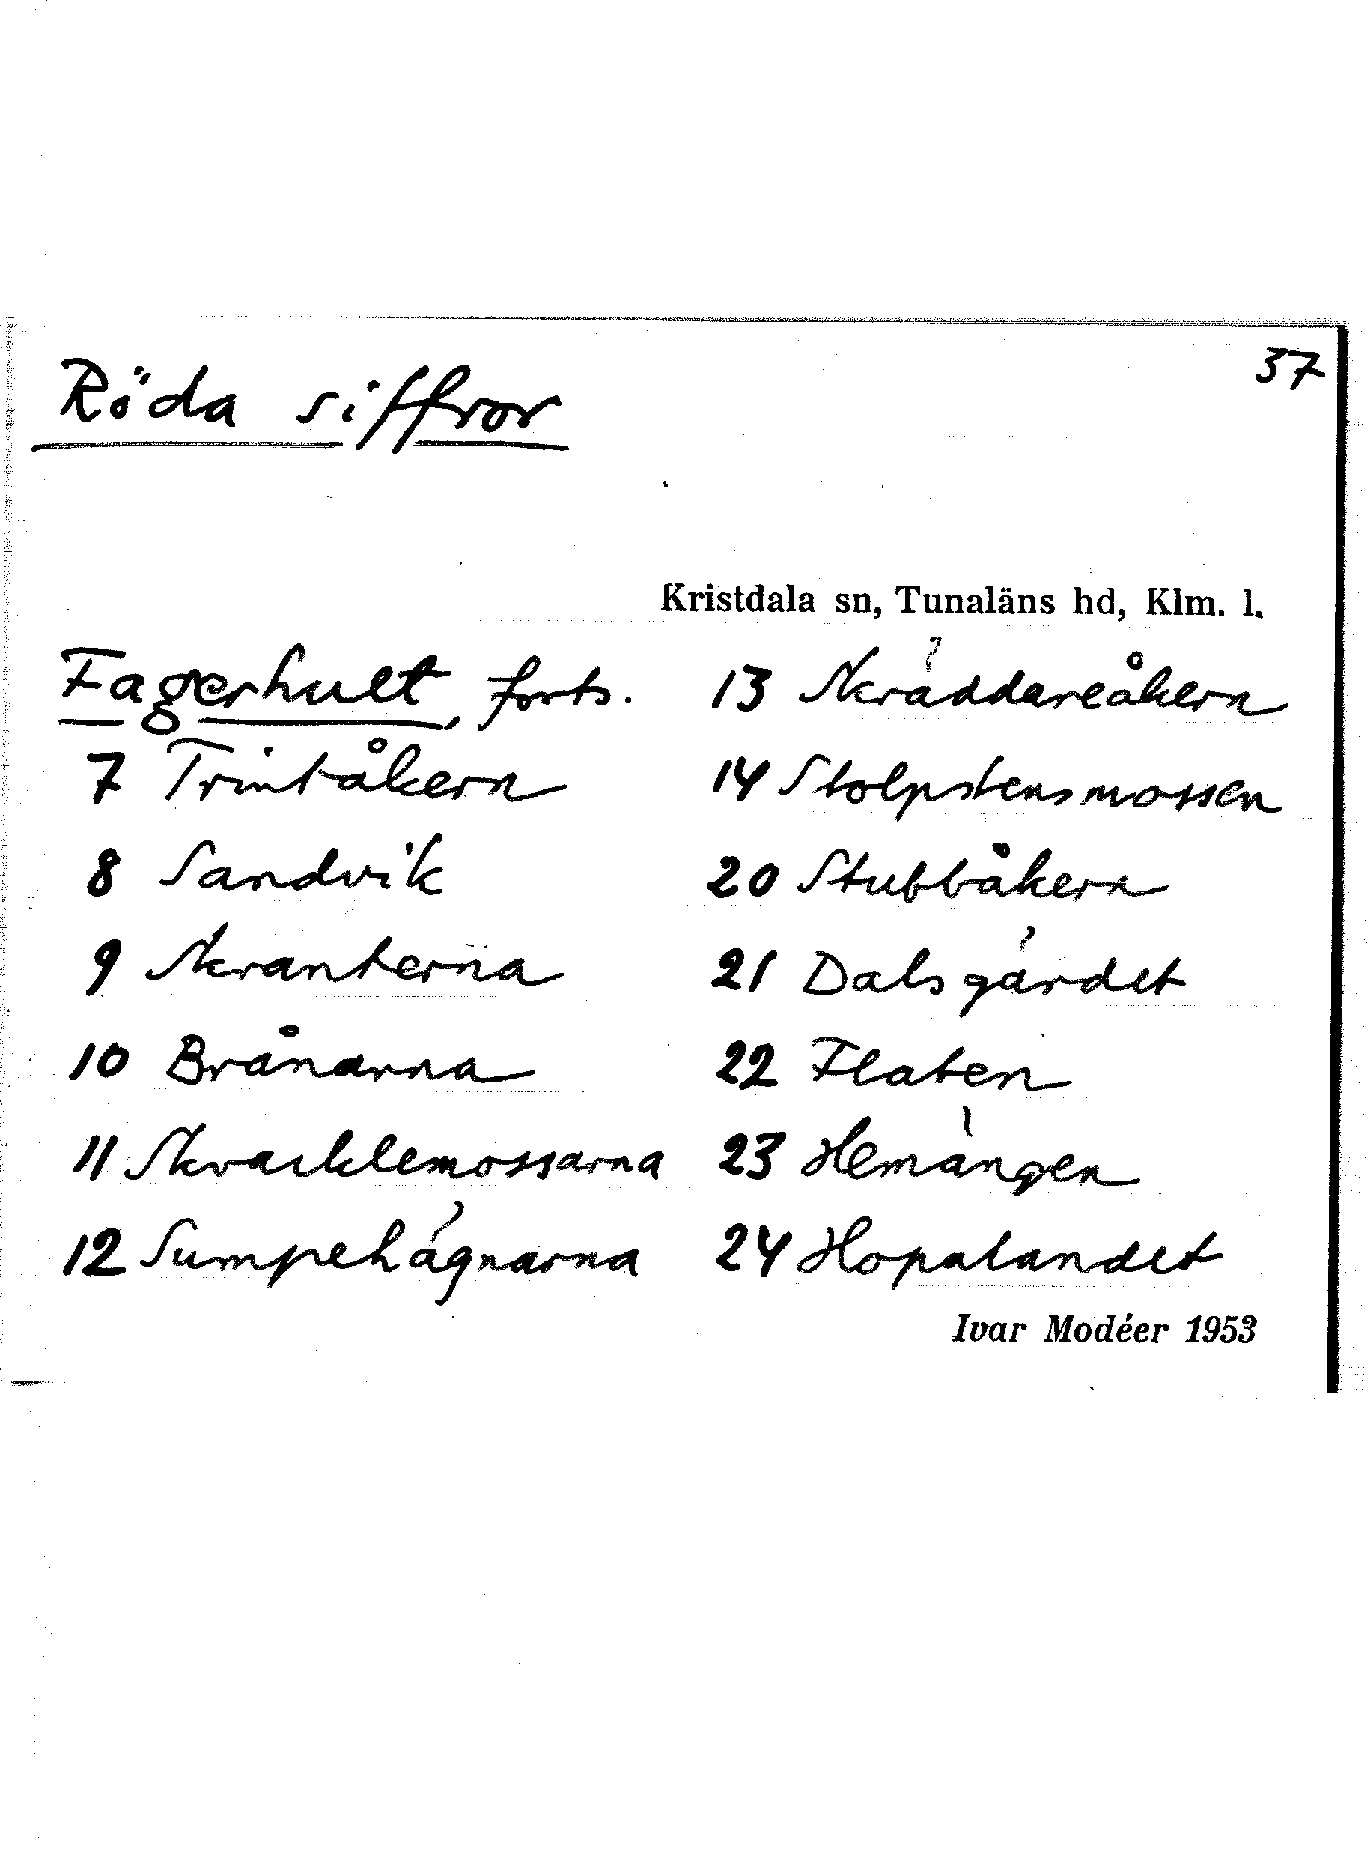 37
Röda siffror
Kristdala sn, Tunaläns hd, Klm. l.
Fagerhult, forts.
7 Trintåkern
8 Sandvik
9 Skranterna
10 Brånarna
11 Skvacklemossarna
12 Sumpehägnarna
13 Skräddareåkern
14 Stolpstensmossen
20 Stubbåkern
21 Dalsgärdet
22 Flaten
23 Hemängen
24 Hopalandet
Ivar Modéer 1953